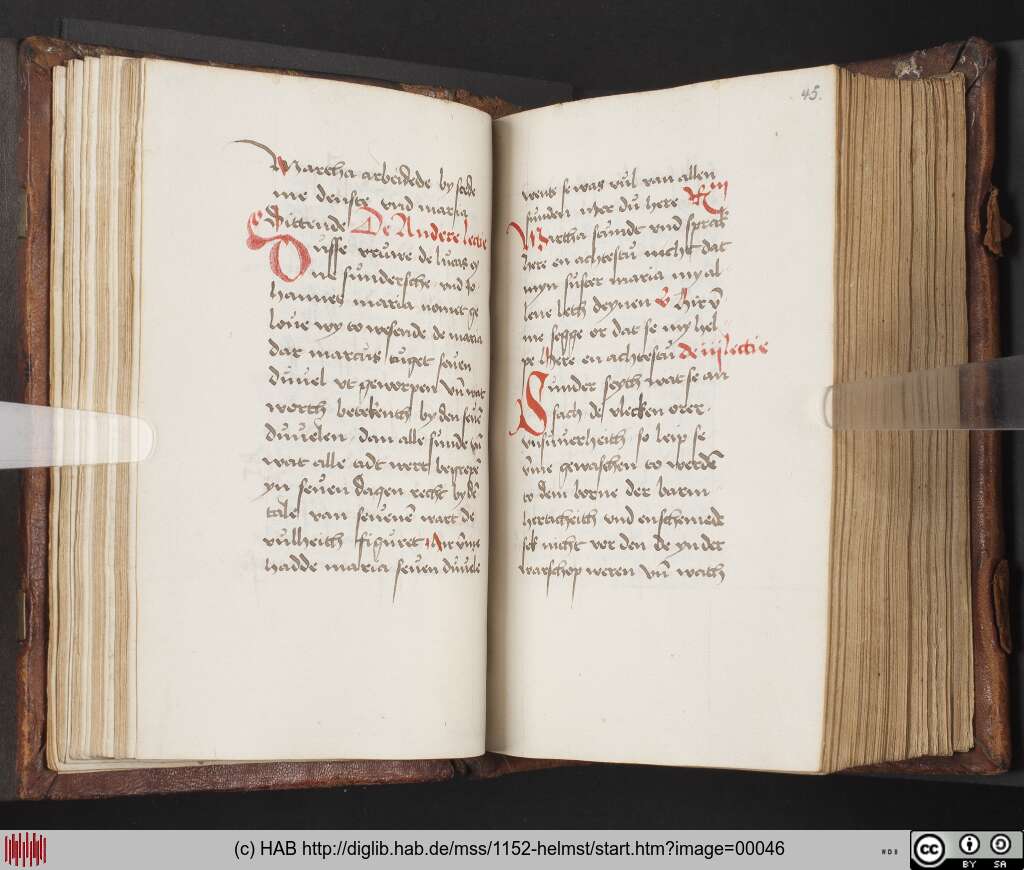 Martha arbeidede by stede
me denste vnd maria
Sittende De Andere lectie
Dusse vruwe de lucas ey
ne sundersche vnd Jo
hannes maria nomet ge
loue wy to wesende de maria
dar marcus tuget seuen
duuel vt geworpen vn̄ wat
werth betekenth by den seuē
duuelen dan alle sunde vn̄
wat alle tidt wert begrepē
yn seuen dagen recht by dē
tale van seuenē wart de
vulheith figuret vm̄e
hadde maria seuen duuele
45.
wente se was vul van allen
sunden mer du here
Martha stundt vnd sprak
here en achtestu nicht dat
myn suster maria my al
lene leth deynen
me segge er dat se my hel
pe here en achtestu de iij lectie
Sunder seyth wat se an
sach de vlecken erer
vnsuuerheith so leip se
vm̄e gewaschen to werdē
to dem borne der barm
herticheith vnd enschemede
sek nicht vor den de yn der
wartschop weren vn̄ wath
(c) HAB http://diglib.hab.de/mss/1152-helmst/start.htm?image=00046
WDB
cc
BY SA